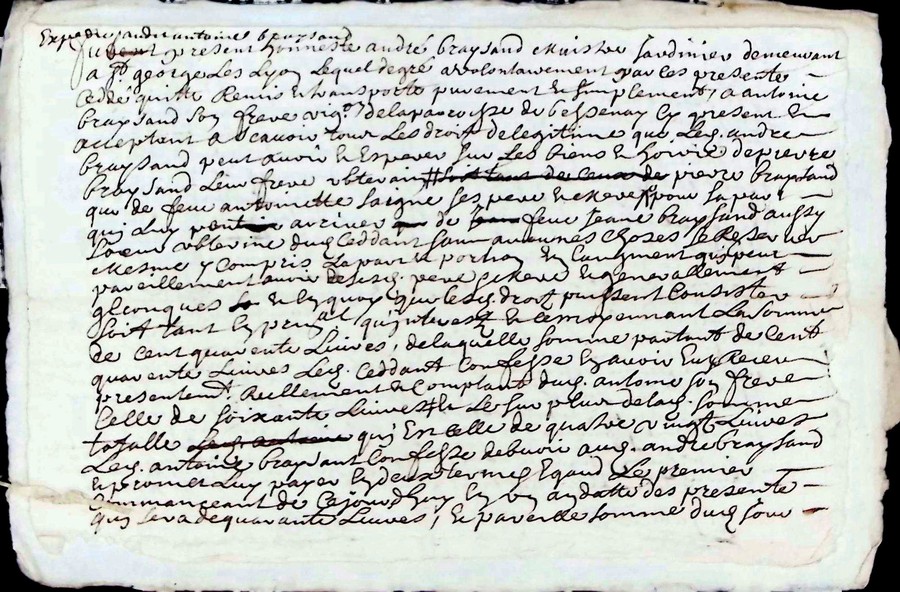 Exped. andre antoine braysand
fut present honneste andré braysand Maistre Jardinier demeurant
a St george Les Lyon Lequel degré a volontairement par les presente
cedde quitte Remis & transporte purement & simplement, a antoine
braysand son frere vigon delaparoisse de bessenay Cy present &
acceptant a scavoir tous Les droit de legitime que Led. andre
braysand peut avoir & Esperer sur Les biens & hoirie de pierre
braysand Leur frere uterain soit tant de ceux de pierre braysand
que de feue antoinette saigne ses pere & mere pour sa part
qui Luy arriver de feue Jeane braysand aussy
soeur uterine dud. Ceddant sans aucunes choses se Reserver
Mesme y compris La part & portion En Laugment qui peut
pareillement avoir desd. pere & Mere & generallement
qlconques & En quoy que lesd. droit puissent Consister
soit tant En prin.al qu'interest & ce moyennant La somme
de cent quarente Livres, de laquelle somme partant de cent
quarente Livres Led. Ceddant Confesse En avoir Eu & Receu
presentemt. Reellement & Comptant dud. antoine son frere
Celle de soixante Livres & Le surplus de lad. somme
totalle Led. antoine qui Est celle de quatre vingt Livres
Led. antoine braysand Confesse debvoir aud. andre braysand
& promet Luy payer En deux termes Egaud Le premier
Commanceant de Cejourdhuy En un an datte des presente
qui sera de quarante Livres, & pareille somme dud. Jour